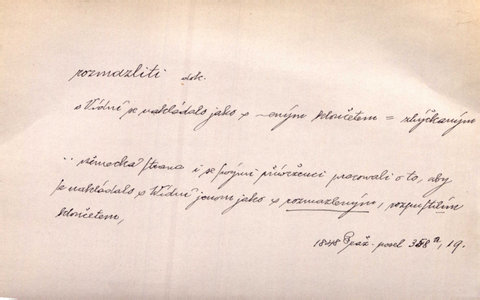 rozmazliti dok.
s Vídní se nakládalo jako s ~eným děvčetem = zhýčkaným
.. německá strana i se svými přívrženci pracovali o to, aby
se nakládalo s Vídní jenom jako s rozmazleným, rozpustilým
děvčetem,
1848 Praž. posel 358 a, 19.